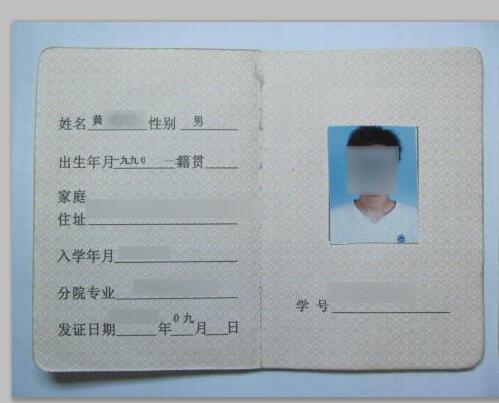 姓名 黄 性别 男
出生年月 一九九0 一 籍贯
家庭
住址
入学年月
分院专业
发证日期 年 0九 月 日
学 号